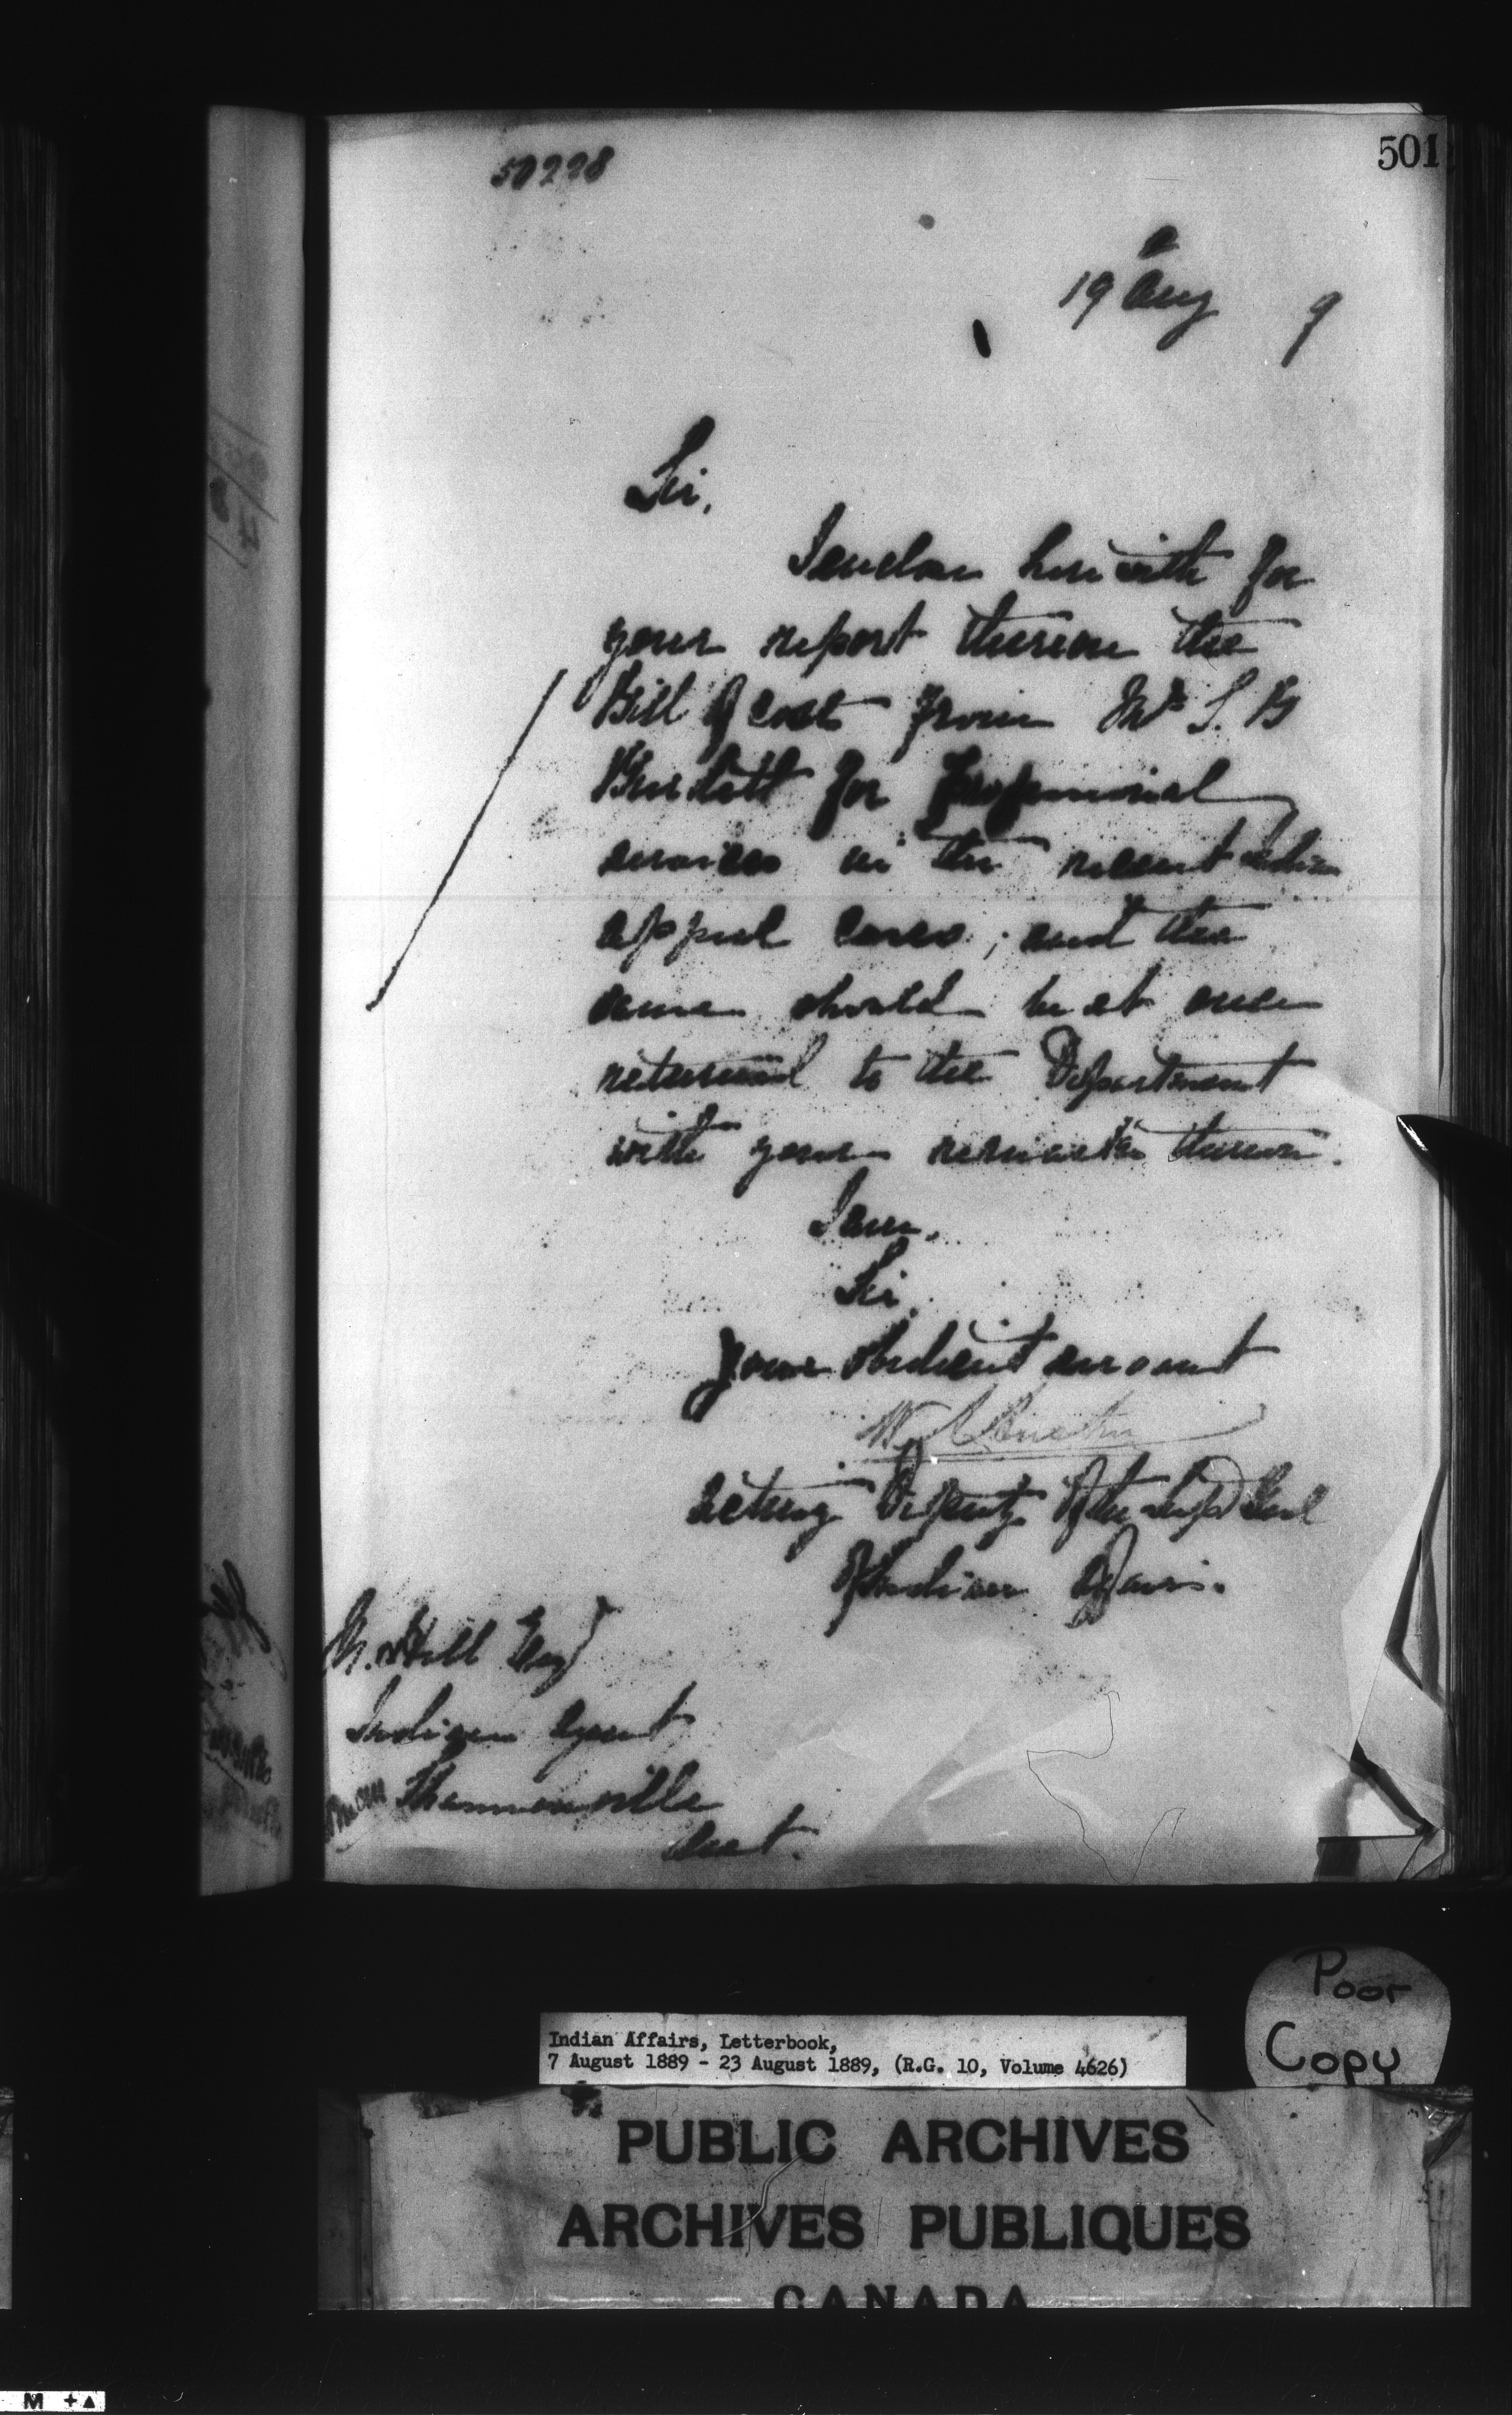 50228
501
19 Aug 9
Sir,
I enclose herewith for
your report thereon the
Bill of cost from Mr S. B
Burdett for Professional
services in the recent Indian
appeal cases; and the
same should be at once
returned to the Department
with your remarks thereon.
I am,
Sir,
Your obedient servant
Acting Deputy of the Supt Genl
of Indian Affairs.
M. Hill Esq
Indian Agent,
Shannonville
Ont.
Poor
Copy
Indian Affairs, Letterbook,
7 August 1889 - 23 August 1889, (R.G. 10, Volume 4626)
PUBLIC ARCHIVES
ARCHIVES PUBLIQUES
CANADA
M +▲